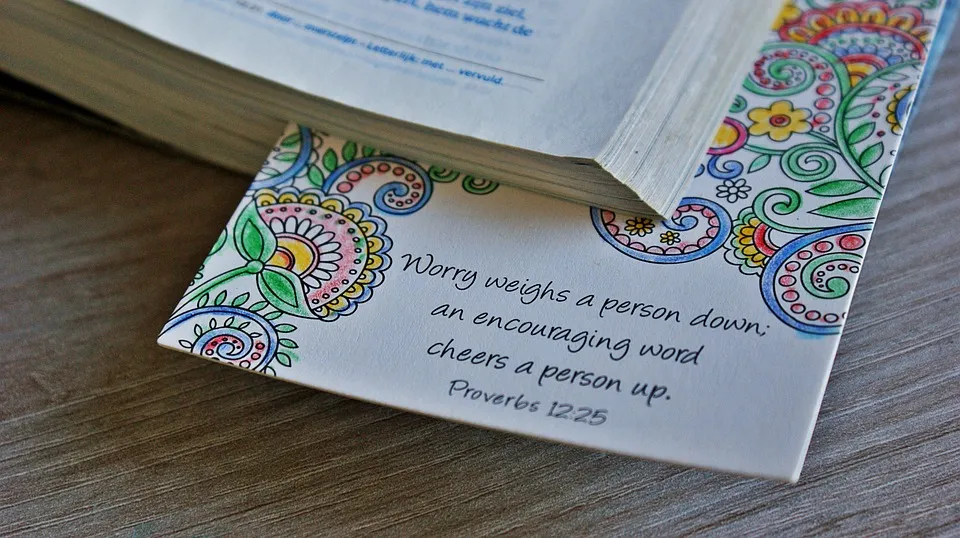 zijn ziel,
hem wacht de
overstelpt - Letterlijk: met ... vervuld.
Worry weighs a person down;
an encouraging word
cheers a person up.
Proverbs 12:25